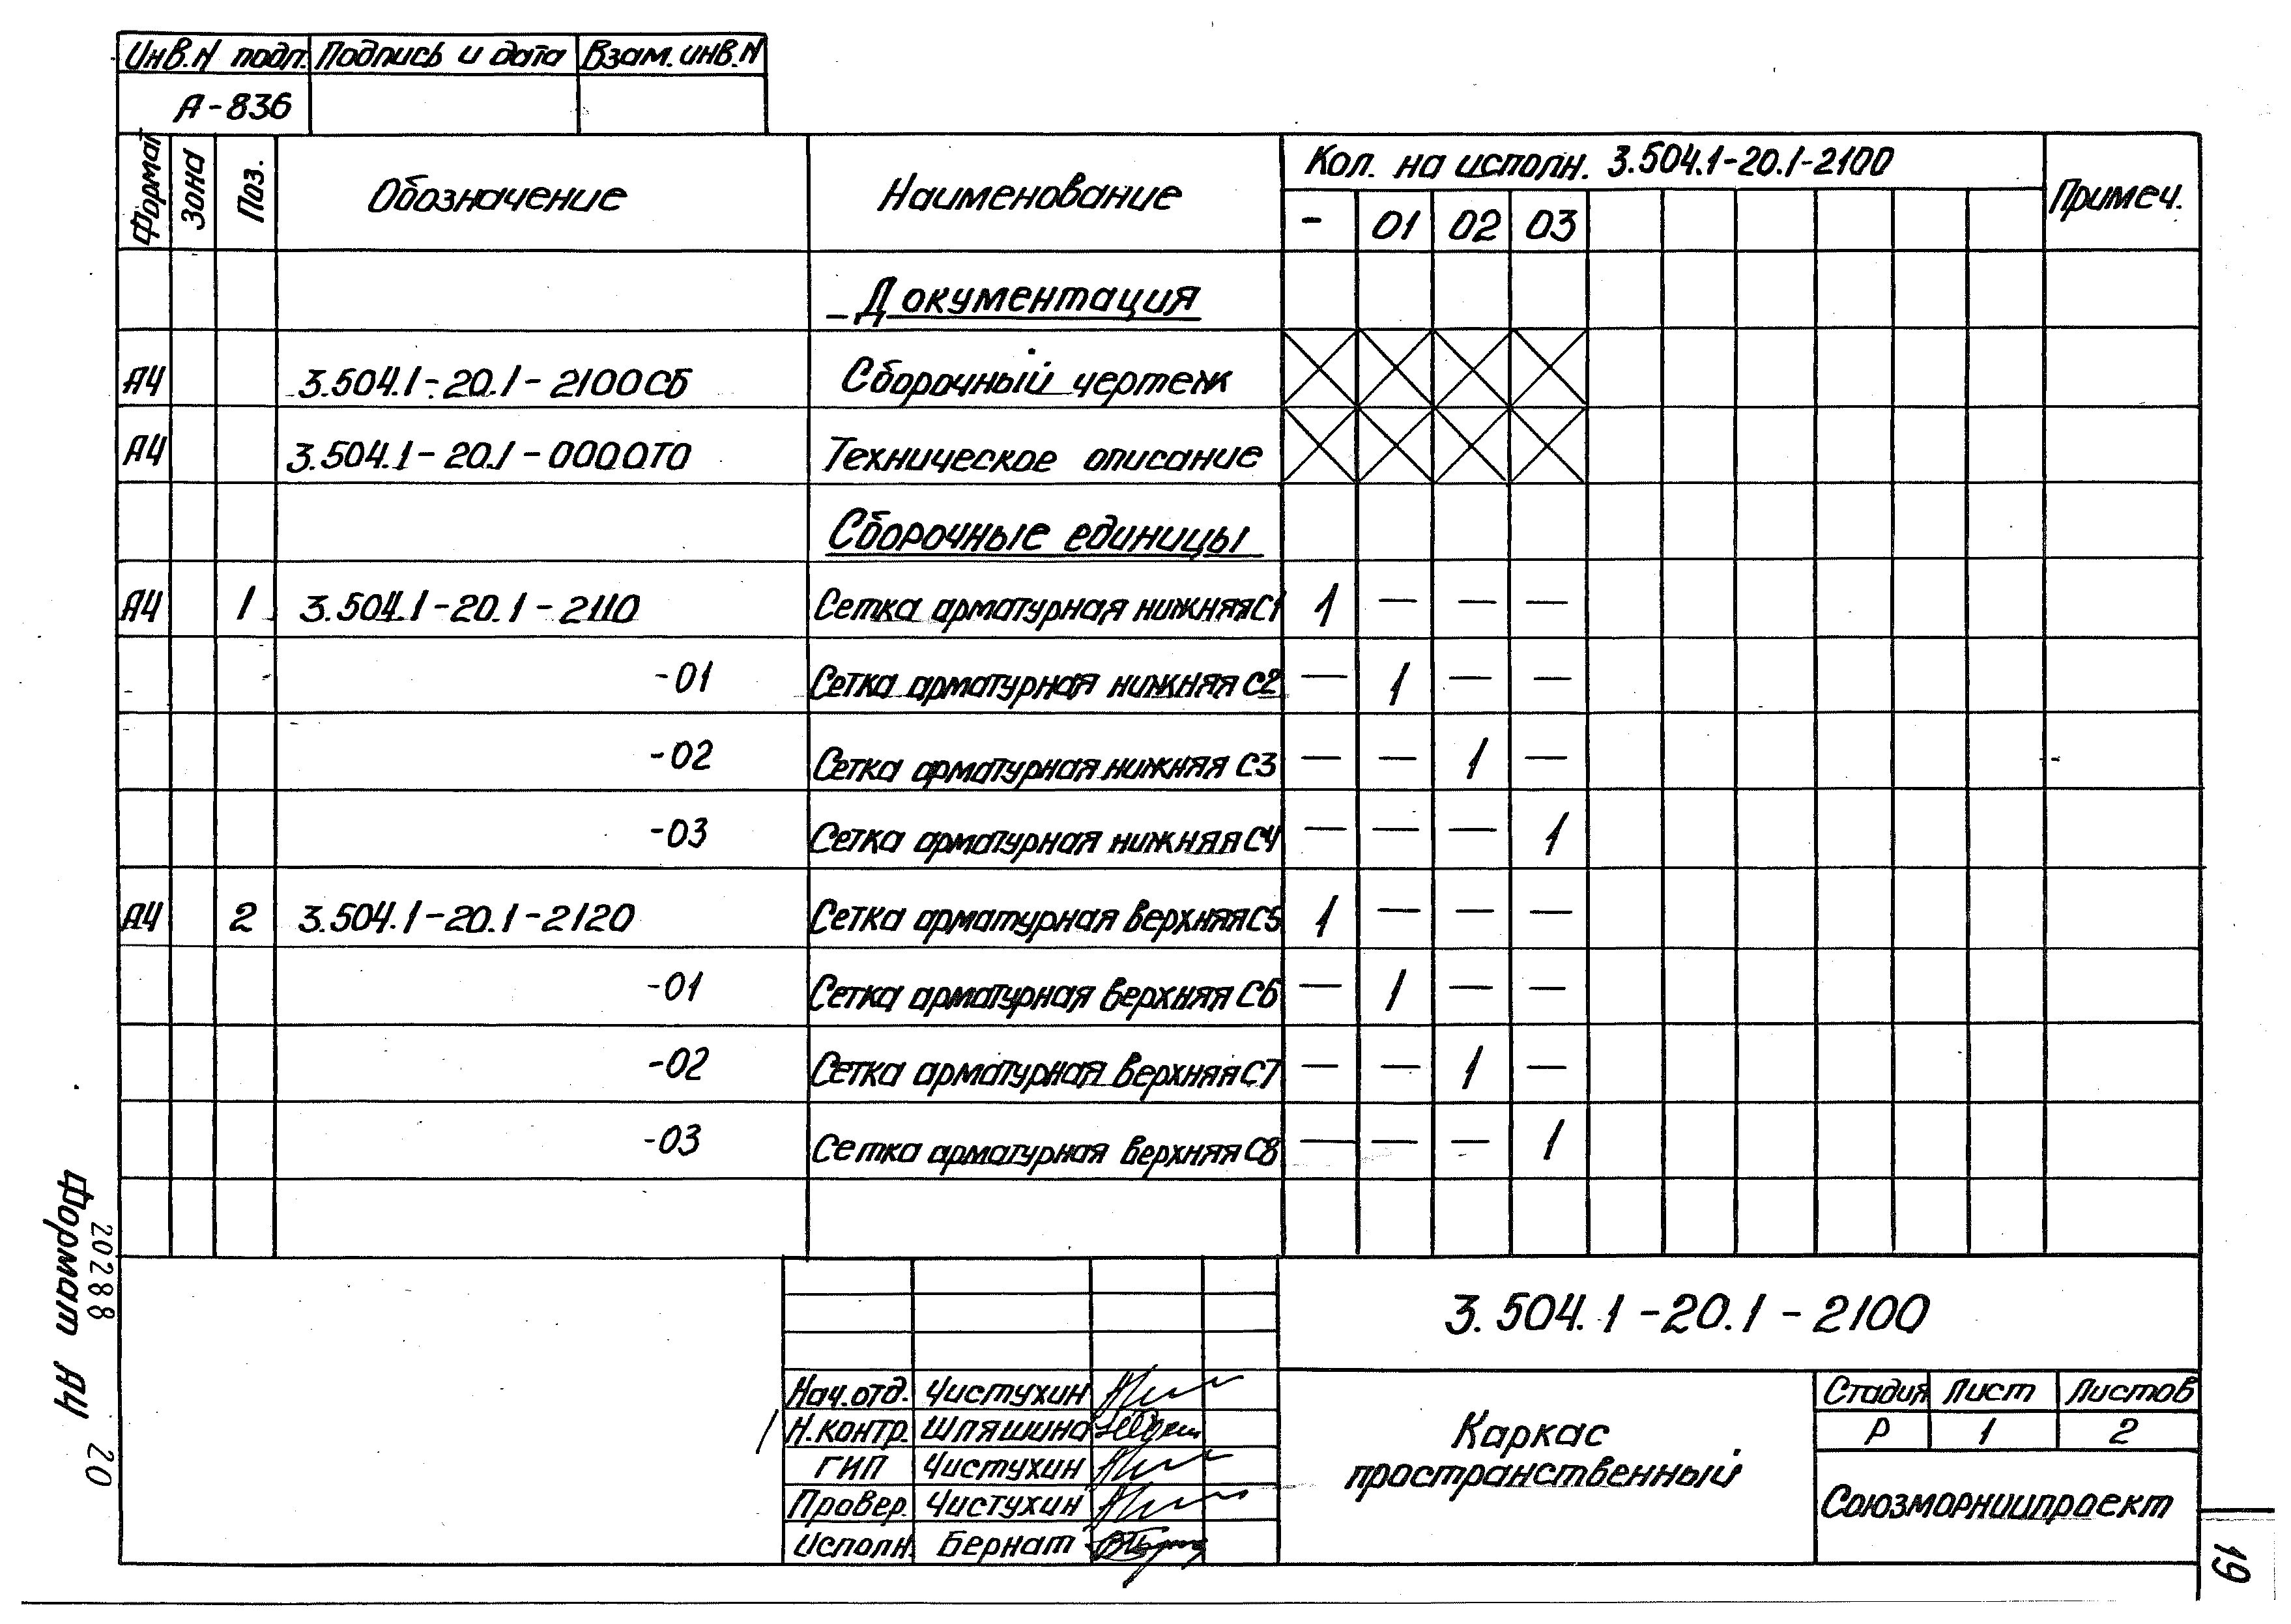 Инв.N подл. Подпись и дата Взам. инв. N
А-836
Формат Зона Поз. Обозначение Наименование Кол. на исполн. 3.504.1-20.1-2100 Примеч.
- 01 02 03
Документация
А4 3.504.1-20.1-2100СБ Сборочный чертеж
А4 3.504.1-20.1-0000ТО Техническое описание
Сборочные единицы
А4 1 3.504.1-20.1-2110 Сетка арматурная нижняя С1 1 — — —
-01 Сетка арматурная нижняя С2 — 1 — —
-02 Сетка арматурная нижняя С3 — — 1 —
-03 Сетка арматурная нижняя С4 — — — 1
А4 2 3.504.1-20.1-2120 Сетка арматурная верхняя С5 1 — — —
-01 Сетка арматурная верхняя С6 — 1 — —
-02 Сетка арматурная верхняя С7 — — 1 —
-03 Сетка арматурная верхняя С8 — — — 1
3.504.1-20.1-2100
Нач.отд. Чистухин
Н.контр. Шляшина
ГИП Чистухин
Провер. Чистухин
Исполн. Бернат
Каркас
пространственный
Стадия Лист Листов
Р 1 2
Союзморниипроект
Формат А4
20288 20
19